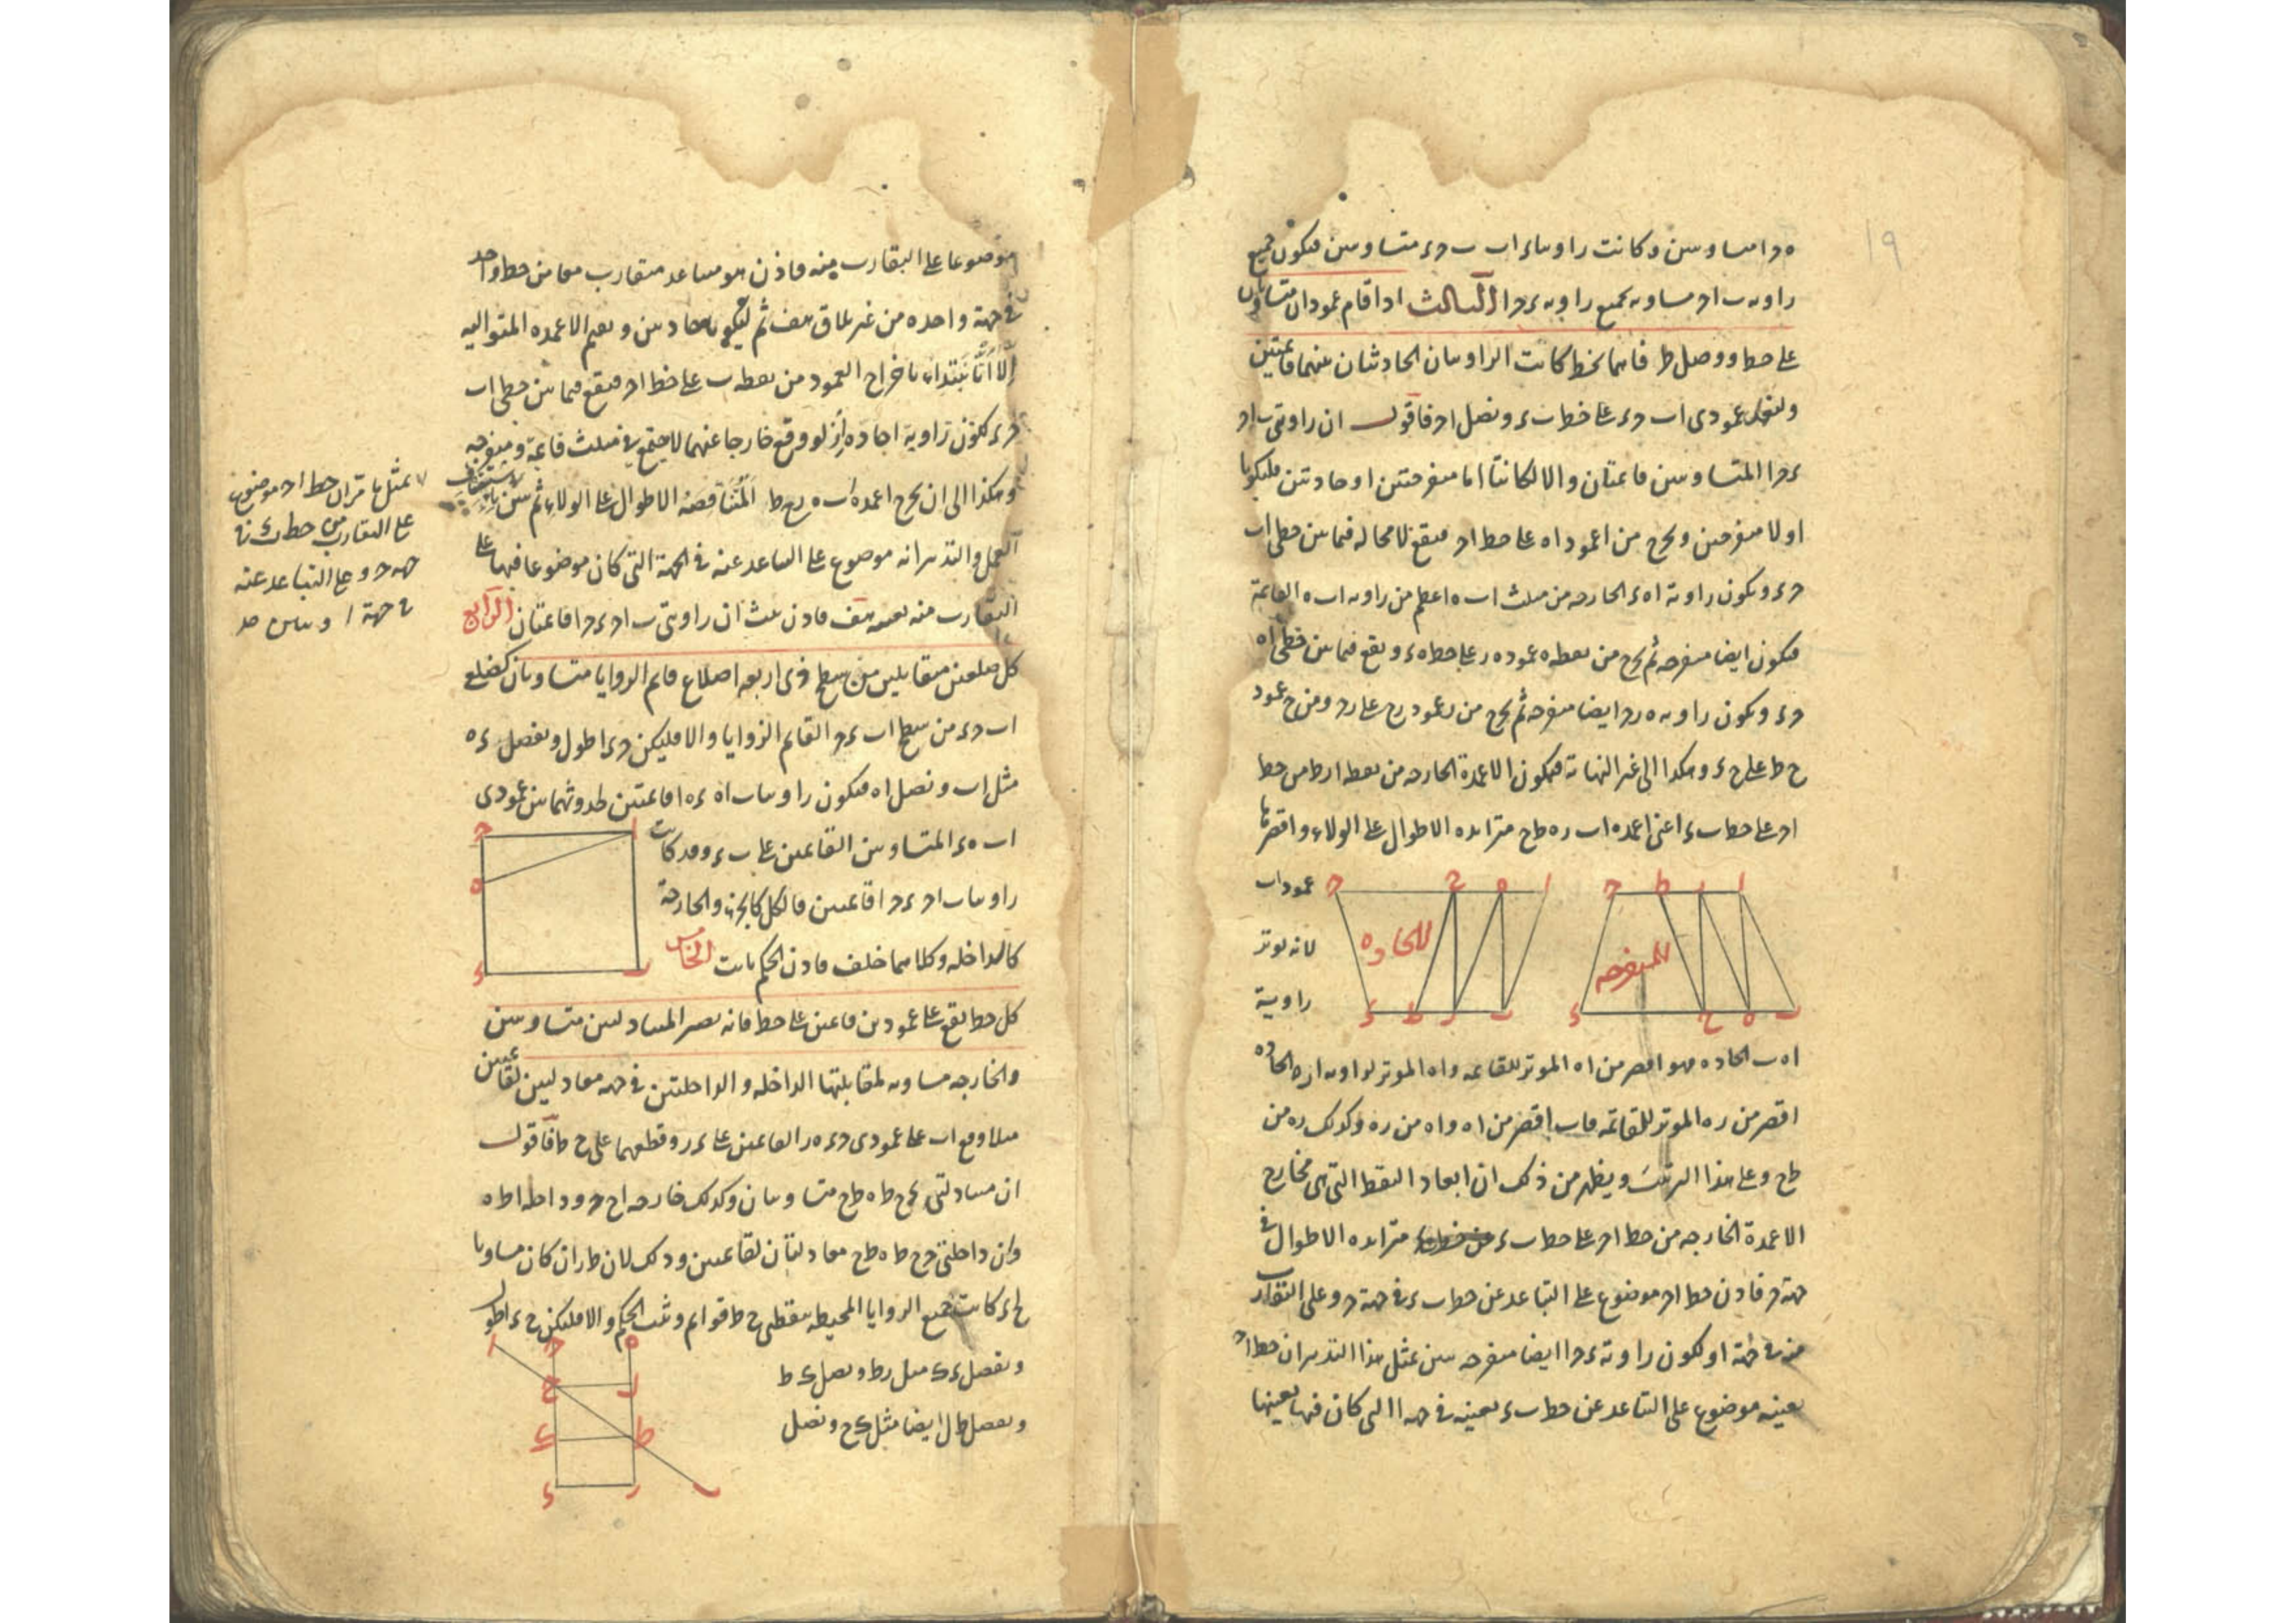 ١٩
ه د ا متساويتين وكانت زاويتا ء ا ب ب ح ء متساويتين فيكون جميع
زاوية ب ا ح مساوية لجميع زاوية ء ح ا الثالث اذا قام عمودان متساويان
على خط ووصل طرفاهما بخط كانت الزاويتان الحادثتان بينهما قائمتين
وليقم عمودى اب حء على خط بء ونصل اح فاقول ان زاويتى ب اح
ء ح ا المتساويتين قائمتان والا لكانتا اما منفرجتين او حادتين فليكونا
اولا منفرجتين ونخرج من ا عمود اه على خط اح فيقع لا محالة فيما بين خطى اب
حء ويكون زاوية اهء الخارجه من مثلث ابه اعظم من زاويه ابه القائمة
فيكون ايضا منفرجه ثم نخرج من نقطه ه عمود هر على خط هء ويقع فيما بين خطى اه
حء ويكون زاويه ه ر ح ايضا منفرجه ثم نخرج من ر عمود رح على رح ومن ح عمود
ح ط على ح ء وهكذا الى غير النهاية فيكون الاعمدة الخارجه من نقطه ا ر ط من خط
اح على خط بء اعنى اعمدة اب ره طح متزايده الاطوال على الولاء واقصرها
عمود اب
لانه يوتر
زاوية
ا ر ط ح
ب ه ح ء
للمنفرجه
ا ه ح ح
ب ر ط ء
للحاده
اه ب الحاده فهو اقصر من اه الموتر للقائمه واه الموتر لزاويه اره الحاده
اقصر من ره الموتر للقائمه فاب اقصر من اه واه من ره وكذلك ره من
طح وعلى هذا الترتيب ويظهر من ذلك ان ابعاد النقط التى هى مخارج
الاعمدة الخارجه من خط اح على خط بء متزايده الاطوال فى
جهة ح فاذن خط اح موضوع على التباعد عن خط بء فى جهة ح وعلى التقارب
منه فى جهة ا ولكون زاوية ء ح ا ايضا منفرجه تبين بمثل هذا التدبير ان خط اح
بعينه موضوع على التباعد عن خط بء بعينه فى جهة ا التى كان فيها بعينها
موضوعا على التقارب منه فاذن هو متباعد متقارب معا من خط واحد
فى جهة واحده من غير تلاق هف ثم ليكونا حادتين ونقيم الاعمده المتواليه
الا انا نبتداء باخراج العمود من نقطه ب على خط اح فيقع فيما بين خطى اب
حء لكون زاوية ا حاده اذ لو وقع خارجا عنهما لاجتمع فى مثلث قائمة ومنفرجه
وهكذا الى ان نخرج اعمدة اب ه رح ط المتناقصة الاطوال على الولاء ثم نبين باستيناف
العمل والتدبير انه موضوع على التباعد عنه فى الجهة التى كان موضوعا فيها على
التقارب منه بعينه هف فاذن ثبت ان زاويتى ب اح ء ح ا قائمتان الرابع
كل ضلعين متقابلين من سطح ذى اربعه اضلاع قائم الزوايا متساويان كضلعى
اب حء من سطح اب ء ح القائم الزوايا والا فليكن حء اطول ونفصل ءه
مثل اب ونصل اه فيكون زاويتا ب اه ءه ا قائمتين لحدوثهما بين عمودى
اب هء المتساويين القائمين على بء وقد كانت
زاويتا ب اح ء ح ا قائمتين فالكل كالجزء والخارجة
كالداخله وكلاهما خلف فاذن الحكم ثابت الخامس
ا ح ه ب ء
كل خط يقع على عمودين قائمين على خط فانه يصير المتبادلتين متساويتين
والخارجه مساويه لمقابلتها الداخله والداخلتين فى جهه معادلتين لقائمتين
مثلا وقع اب على عمودى حء هر القائمين على ءر وقطعهما على ح ط فاقول
ان متبادلتى حح ط ه ط ح متساويتان وكذلك خارجه اح ح وداخله اط ه
وان داخلتى حح ط ه ط ح معادلتان لقائمتين وذلك لان طر ان كان مساويا
لح ء كانت جميع الزوايا المحيطه بنقطتى ح ط قوائم وثبت الحكم والا فليكن ح ء اطول
ونفصل ءك مثل رط ونصل ك ط
ونفصل ط ل ايضا مثل ك ح ونصل
ا ح ه
ح ل
ك ط
ء ر ب
على التقارب من خط بء فى
جهه ح وعلى التباعد عنه
فى جهة ا